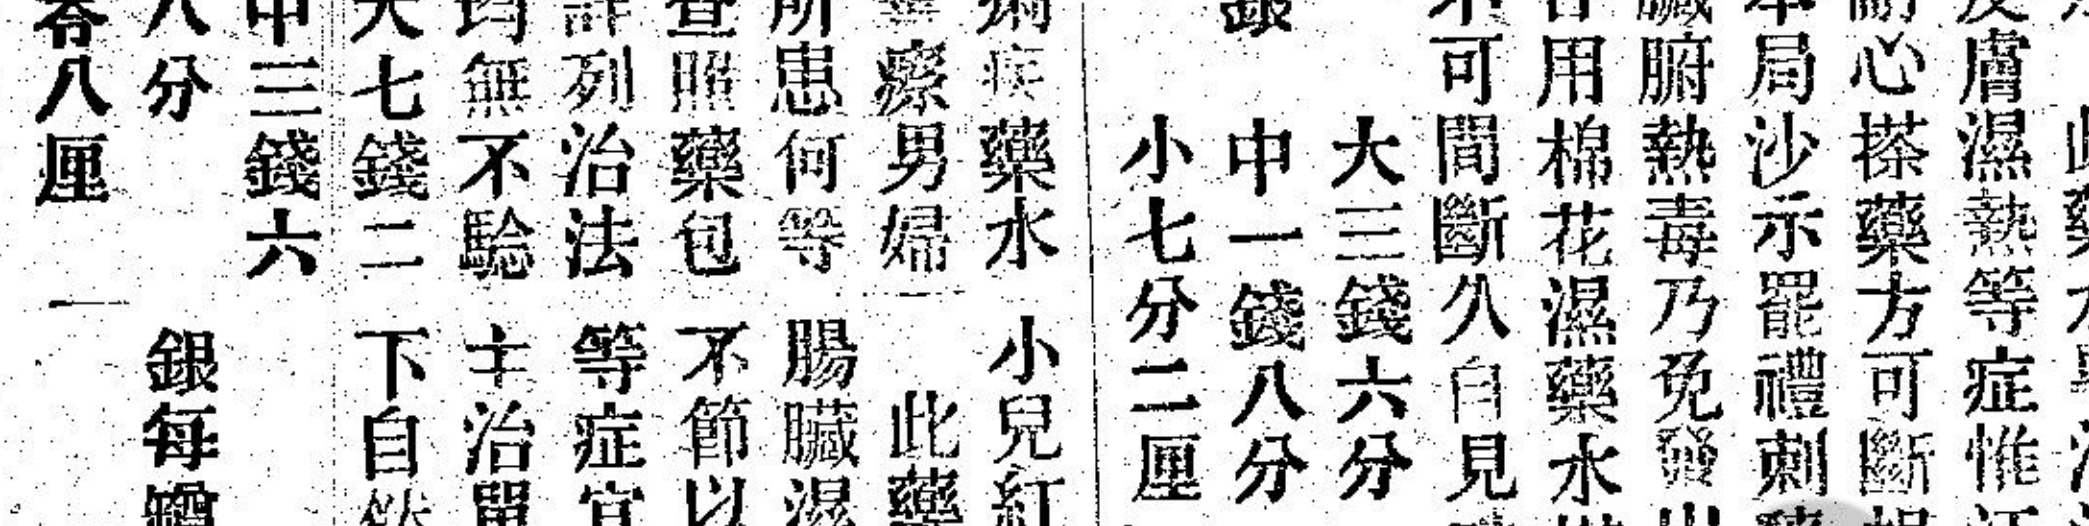 膚濕熱等症惟
心搽藥方可斷
局沙示罷禮刺
腑熱毒乃免發出
用棉花濕藥水
不可間斷久自見
大三錢六分
中一錢八分
銀
小七分二厘
疾藥水
小兒紅
瘰男婦
此藥
所患何等
腸臟濕
查照藥包
不節以
詳列治法
等症宜
均無不驗
主治單
大七錢二
下自然
中三錢六
八分
銀每罇
八厘